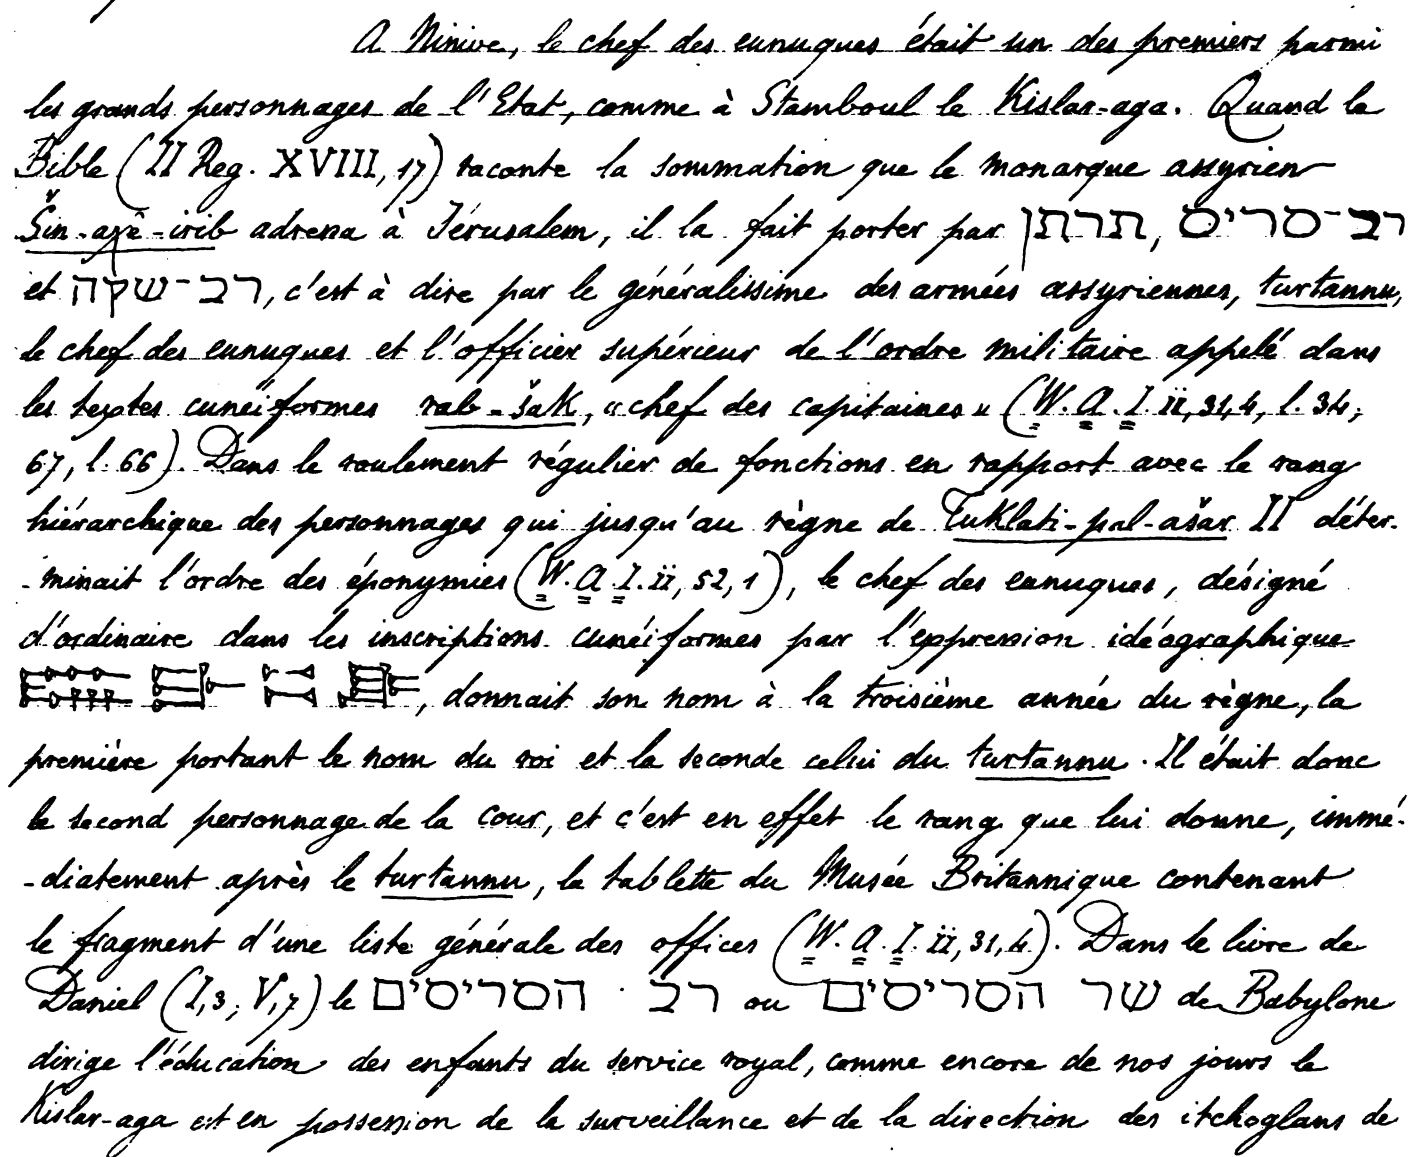 A Ninive, le chef des eunuques était un des premiers parmi
les grands personnages de l'Etat, comme à Stamboul le Kislar-aga. Quand la
Bible (II Reg. XVIII, 17) raconte la sommation que le monarque assyrien
Šin-aχê-irib adressa à Jérusalem, il la fait porter par תרתן, רב־סריס
et רב־שקה, c'est à dire par le généralissime des armées assyriennes, turtannu,
le chef des eunuques et l'officier supérieur de l'ordre militaire appelé dans
les textes cunéiformes rab-šak, «chef des capitaines» (W. A. I. ii, 31, 4, l. 34;
67, l. 66). Dans le roulement régulier de fonctions en rapport avec le rang
hiérarchique des personnages qui jusqu'au règne de Tuklati-pal-ašar II déter-
-minait l'ordre des éponymies (W. A. I. ii, 52, 1), le chef des eunuques, désigné
d'ordinaire dans les inscriptions cunéiformes par l'expression idéographique
, donnait son nom à la troisième année du règne, la
première portant le nom du roi et la seconde celui du turtannu. Il était donc
le second personnage de la cour, et c'est en effet le rang que lui donne, immé-
-diatement après le turtannu, la tablette du Musée Britannique contenant
le fragment d'une liste générale des offices (W. A. I. ii, 31, 4). Dans le livre de
Daniel (I, 3; V, 7) le רב הסריסים ou שר הסריסים de Babylone
dirige l'éducation des enfants du service royal, comme encore de nos jours le
Kislar-aga est en possession de la surveillance et de la direction des itchoglans de